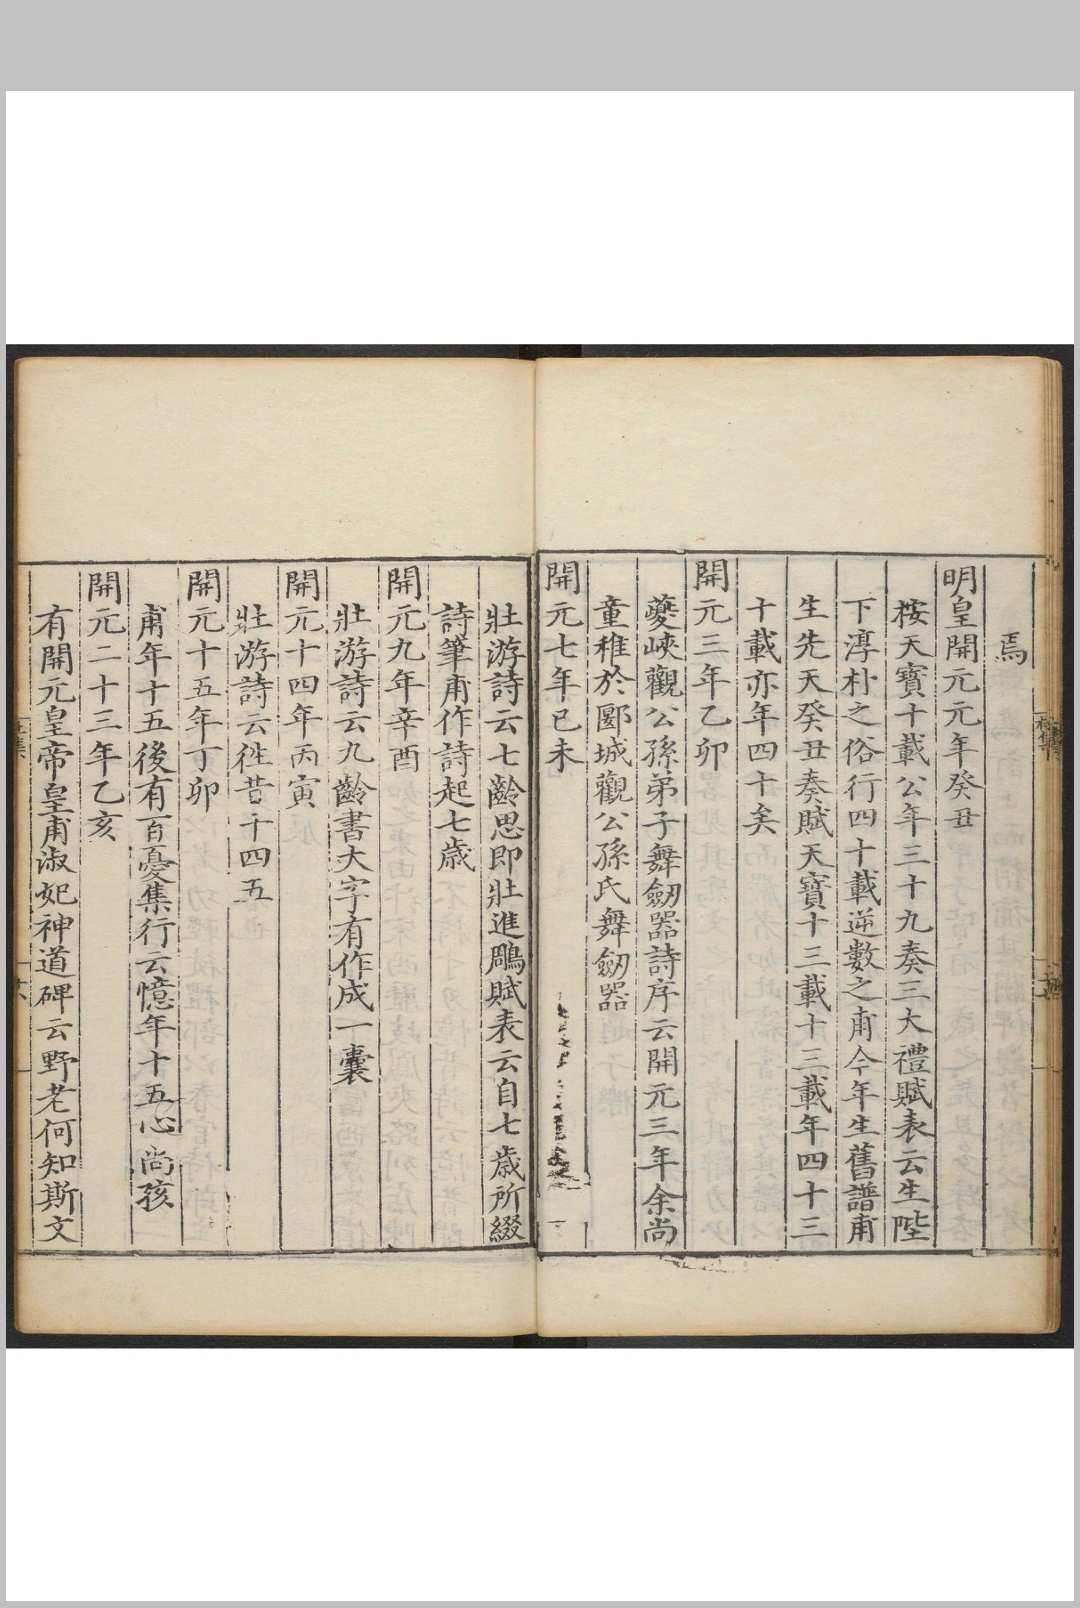 焉
明皇開元元年癸丑
按天寶十載公年三十九奏三大禮賦表云生陛
下淳朴之俗行四十載逆數之甫今年生舊譜甫
生先天癸丑奏賦天寶十三載十三載年四十三
十載亦年四十矣
開元三年乙卯
夔峽觀公孫弟子舞劒器詩序云開元三年余尚
童稚於郾城觀公孫氏舞劒器
開元七年已未
壯游詩云七齡思即壯進鵰賦表云自七歲所綴
詩筆甫作詩起七歲
開元九年辛酉
壯游詩云九齡書大字有作成一囊
開元十四年丙寅
壯游詩云徃昔十四五
開元十五年丁卯
甫年十五後有百憂集行云憶年十五心尚孩
開元二十三年乙亥
有開元皇帝皇甫淑妃神道碑云野老何知斯文